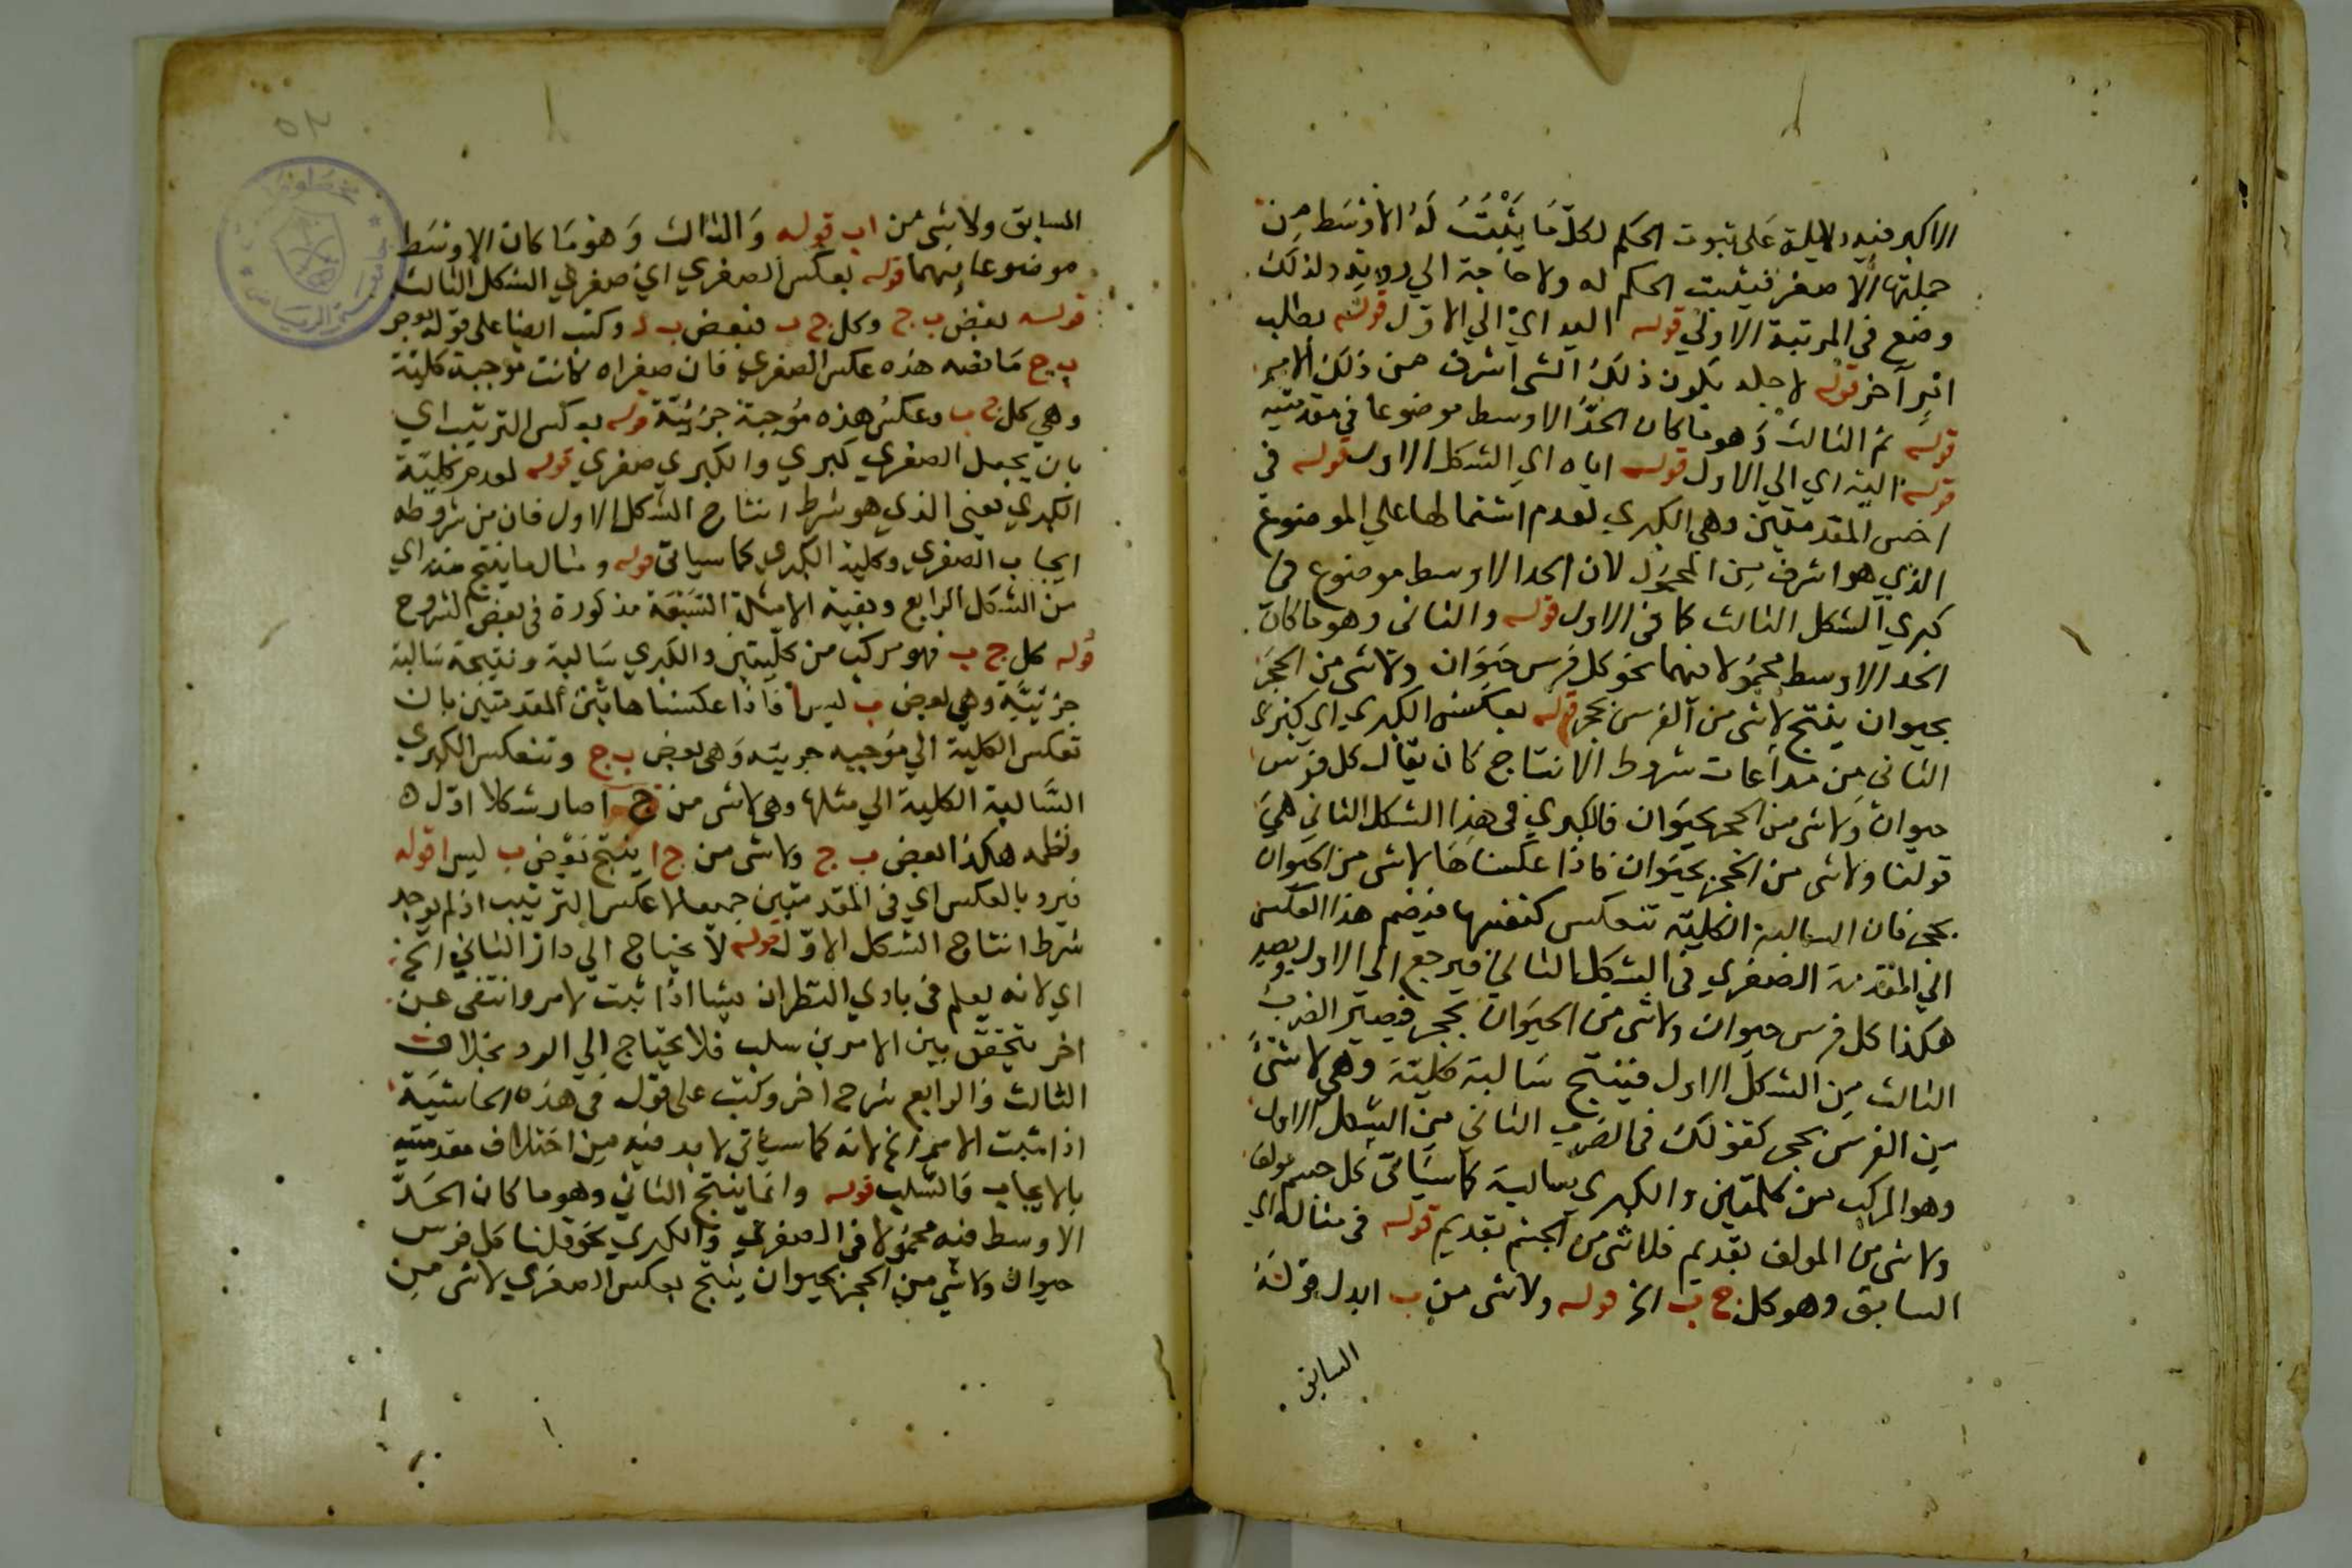 الاكبر فيه دلالة على ثبوت الحكم لكل مَا يَثْبُتُ لَهُ الاَوْسَط من
جملتها الاصغر فيثبت الحكم له ولا حاجة الي رويته ولذلك
وضع في المرتبة الاولي قوله اليه اي الي الاول قوله بطلب
اثر آخر قوله لاجله يكون ذلك الشي اشرف من ذلك الامر
قوله ثم الثالث وهو ما كان الحدّ الاوسط موضوعا في مقدمتيه
قوله اليه اي الي الاول قوله اياه اي الشكل الاول قوله في
اخس المقدمتين وهي الكبري لعدم اشتمالها علي الموضوع
الذي هو اشرف من المحمول لان الحد الاوسط موضوع في
كبري الشكل الثالث كما في الاول قوله والثاني وهو ما كان
الحد الاوسط محمولا فيهما نحو كل فرس حيوان ولا شي من الحجر
بحيوان ينتج لا شي من الفرس بحجر قوله بعكس الكبري اي كبري
الثاني من مراعات شروط الانتاج كان يقال كل فرس
حيوان ولا شي من الحجر بحيوان فالكبري في هذا الشكل الثاني هي
قولنا ولا شي من الحجر بحيوان فاذا عكسناها لا شي من الحيوان
بحجر فان السالبة الكلية تنعكس كنفسها فيضم هذا العكس
الي المقدمة الصغري في الشكل الثاني فيرجع الي الاول ويصير
هكذا كل فرس حيوان ولا شي من الحيوان بحجر فيصير الضرب
الثالث من الشكل الاول فينتج سالبة كلية وهي لا شئ
من الفرس بحجر كقولك في الضرب الثاني من الشكل الاول
وهو المركب من كليتين والكبري سالبة كما سيأتي كل جسم مولف
ولا شي من المولف بقديم فلا شي من الجسم بقديم قوله في مثاله اي
السابق وهو كل ج ب الخ قوله ولا شي من ب ابدل قوله
السابق
المسابق ولا شي من اب قوله والثالث وهو ما كان الاوسط
موضوعا فيهما قوله بعكس الصغري اي صغري الشكل الثالث
قوله بعض ب ج وكل ج ب فبعض وكتب ايضا علي قوله بعض
ب ج ما نصه هذه عكس الصغري فان صغراه كانت موجبة كلية
وهي كل ج ب وعكس هذه موجبة جزئية قوله بعكس الترتيب اي
بان يجعل الصغري كبري والكبري صغري قوله لعدم كلية
الكبري يعني الذي هو شرط انتاج الشكل الاول فان من شروطه
ايجاب الصغري وكلية الكبري كما سياتي قوله ومثال ما ينتج منه اي
من الشكل الرابع وبقية الامثلة السبقة مذكورة في بعض الشروح
قوله كل ج ب فهو مركب من كليتين والكبري سالبة ونتيجة سالبة
جزئية وهي بعض ب ليس ا فاذا عكسنا هاتين المقدمتين بان
تعكس الكلية الي موجبه جزيئه وهي بعض ب ج وتنعكس الكبري
السالبة الكلية الي مثلها وهي لا شي من ج ا صار شكلا اول
ونظمه هكذا بعض ب ج ولا شي من ج ا ينتج بعض ب ليس ا قوله
فيرد بالعكس اي في المقدمتين جميعا لا عكس الترتيب اذ لم يوجد
شرط انتاج الشكل الاول قوله لا يحتاج الي رد الثاني الخ
اي لانه يعلم في بادي النظر ان شيا اذا ثبت لامر وانتفي عن
اخر يتحقق بين الامرين سلب فلا يحتاج الي الرد بخلاف
الثالث والرابع شرح اخر وكتب علي قوله في هذه الحاشية
اذا ثبت الامر الخ لانه كما سياتي لا بد فيه من اختلاف مقدمتيه
بالايجاب والسلب قوله وانما ينتج الثاني وهو ما كان الحدّ
الاوسط فيه محمولا في الصغري والكبري نحو قلنا كل فرس
حيوان ولا شي من الحجر بحيوان ينتج بعكس الصغري لا شي من